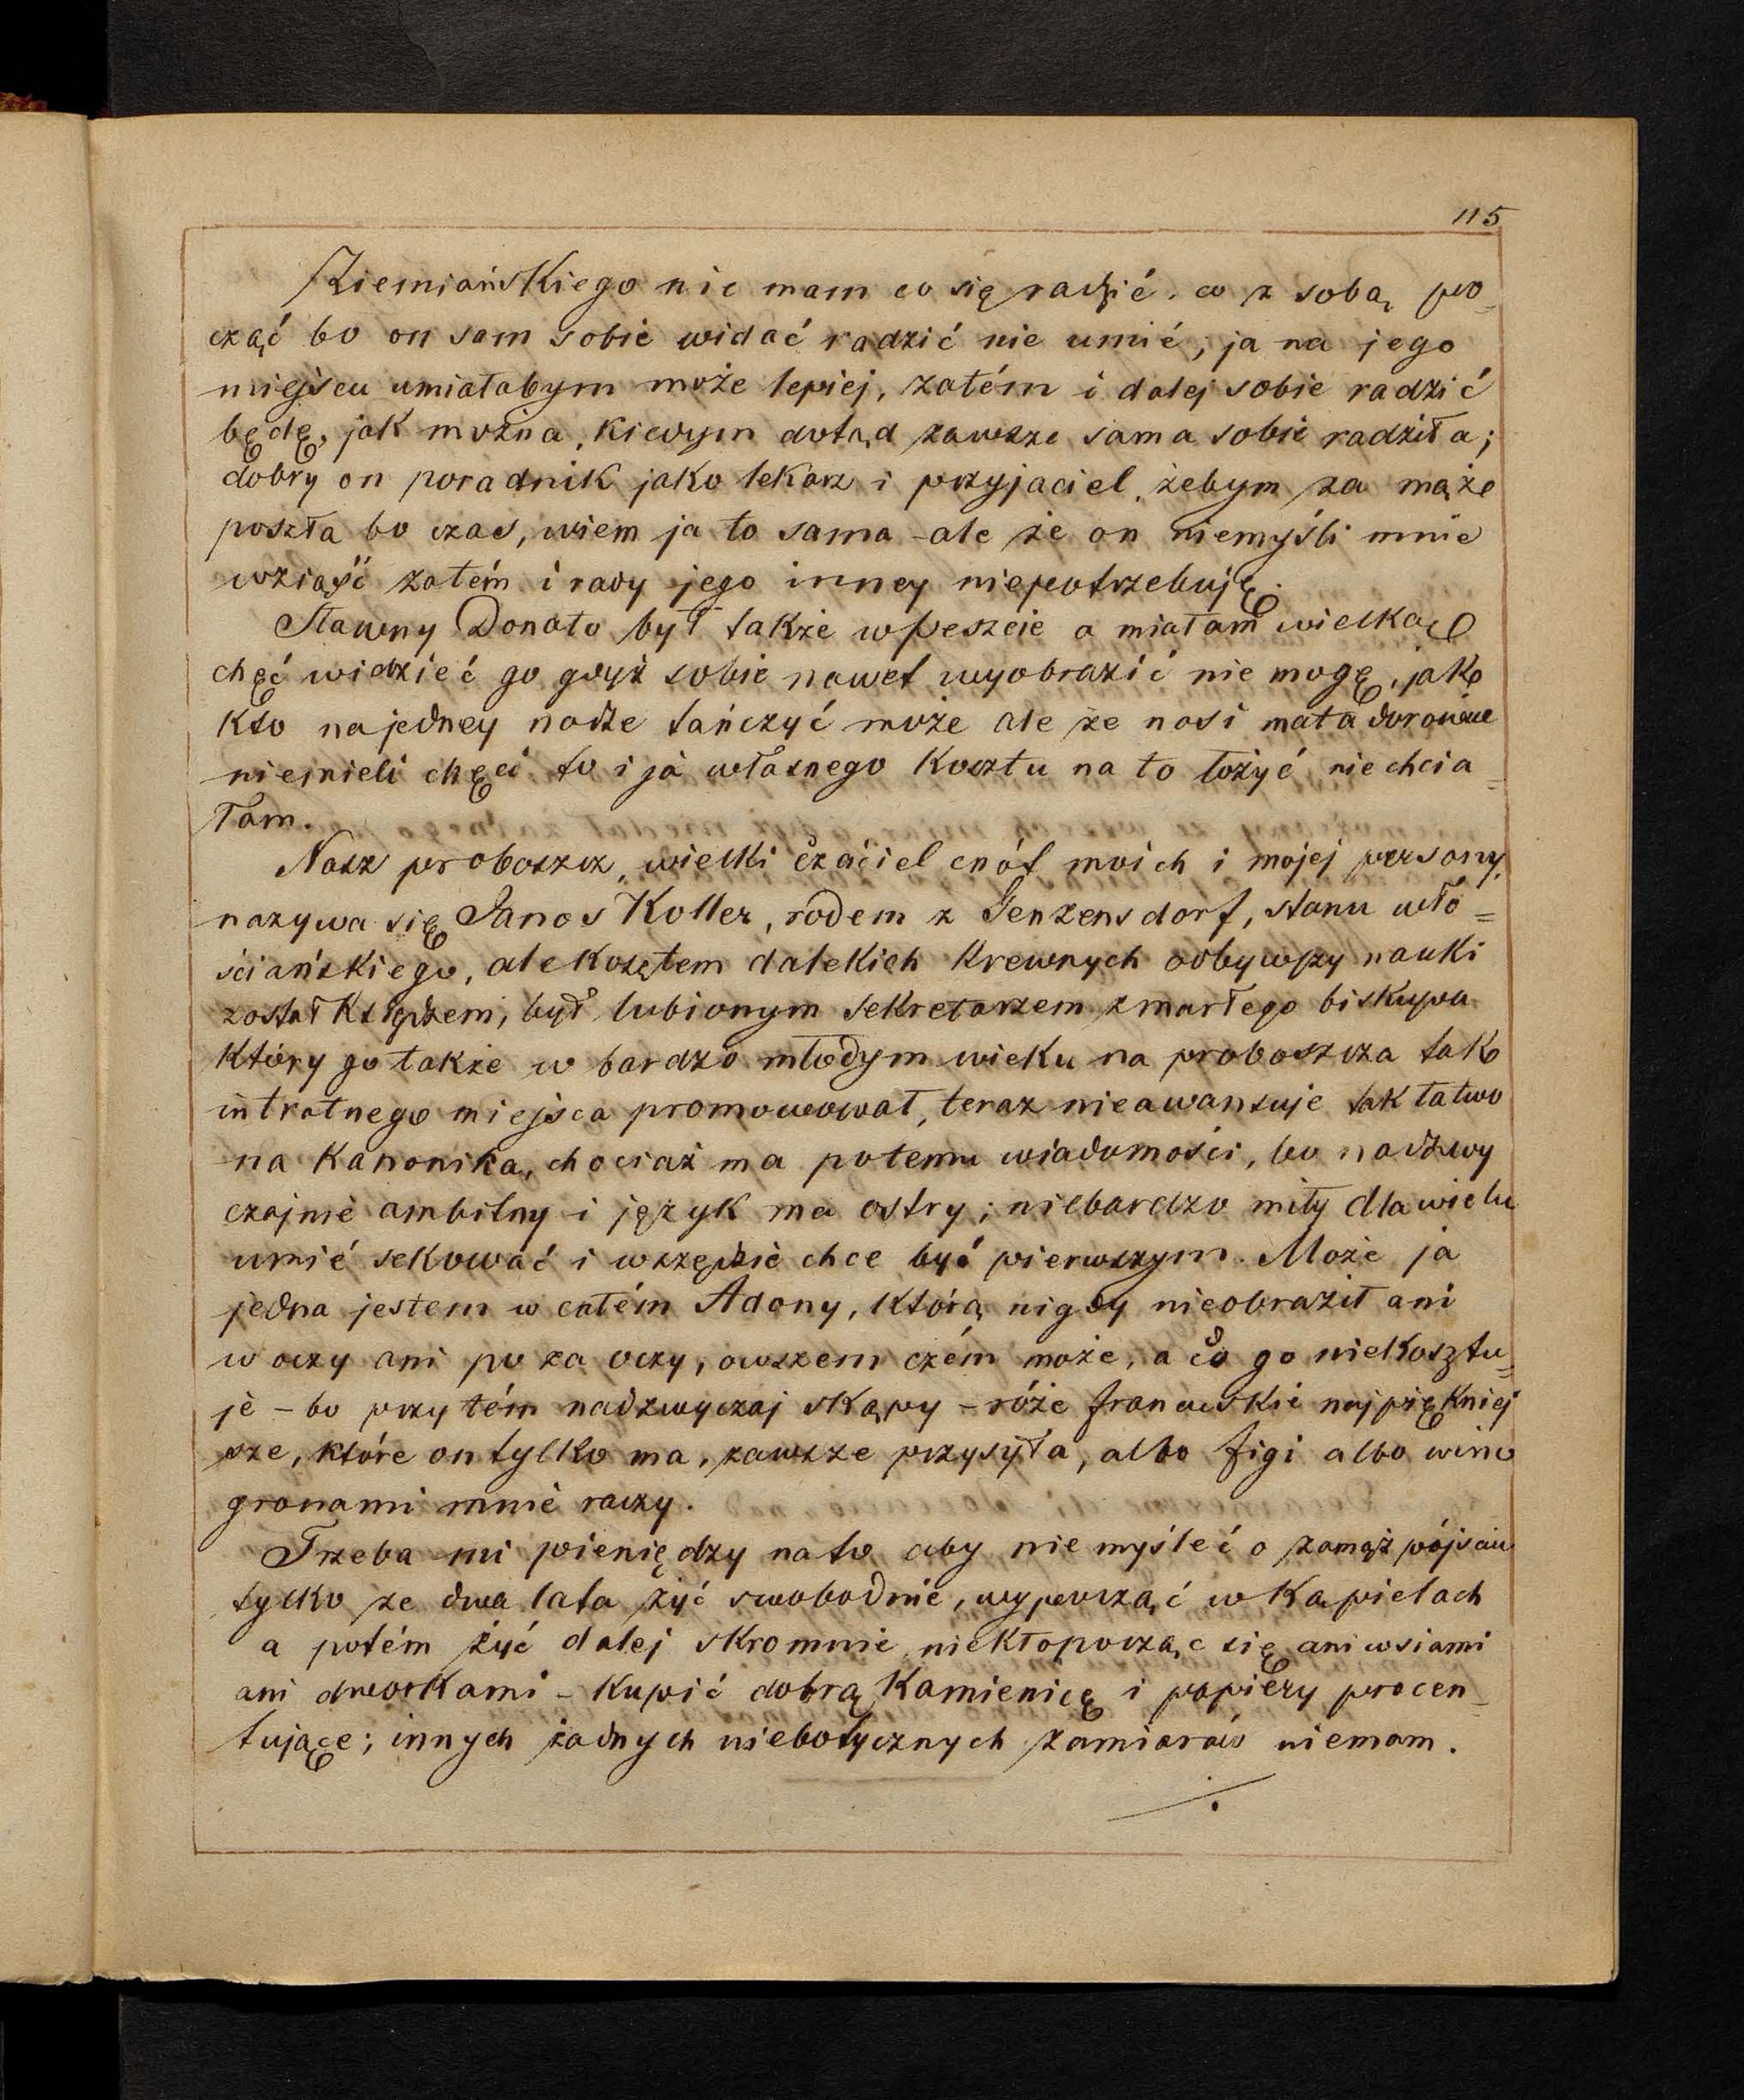 115
Ziemiańskiego nie mam co się radzić, co z sobą po-
cząć bo on sam sobie widać radzić nie umié, ja na jego
miejscu umiałabym może lepiej, zatém i dalej sobie radzić
będę, jak można, kiedym dotąd zawsze sama sobie radziła;
dobry on poradnik jako lekarz i przyjaciel, żebym za mąże
poszła bo czas, wiem ja to sama - ale że on niemyśli mnie
wziąść zatém i rady jego inney niepotrzebuję.
Sławny Donato był także w Peszcie a miałam wielką
chęć widzieć go gdyż sobie nawet wyobrazić nie mogę, jak
kto na jedney nodze tańczyć może ale że nasi matadorowie
niemieli chęci to i ja własnego kosztu na to łożyć nie chcia-
łam.
Nasz proboszcz, wielki czciciel cnót moich i mojej persony,
nazywa się Janos Koller, rodem z Genzensdorf, stanu wło=
ściańskiego, ale kosztem dalekich krewnych odbywszy nauki
został księdzem, był lubionym sekretarzem zmarłego biskupa
który go także w bardzo młodym wieku na proboszcza tak
intratnego miejsca promowował, teraz nieawansuje tak łatwo
na kanonika, chociaż ma potemu wiadomości, bo nadzwy
czajnie ambitny i język ma ostry; niebardzo miły dla wielu
umié sekować i wszędzie chce być pierwszym. Może ja
jedna jestem w całém Adony, którą nigdy nieobraził ani
w oczy ani po za oczy, owszem czém może, a co go niekosztu-
je - bo przy tém nadzwyczaj skąpy - róże francuskie najpiękniej
sze, które on tylko ma, zawsze przysyła, albo figi albo wino
gronami mnie raczy.
Trzeba mi pieniędzy na to aby nie myśleć o zamąż pójściu
tylko ze dwa lata żyć swobodnie, wypocząć w kąpielach
a potém żyć dalej skromnie, niekłopocząc się ani wsiami
ani dworkami - kupić dobrą kamienicę i papiery procen-
tujące; innych żadnych niebotycznych zamiarów niemam.